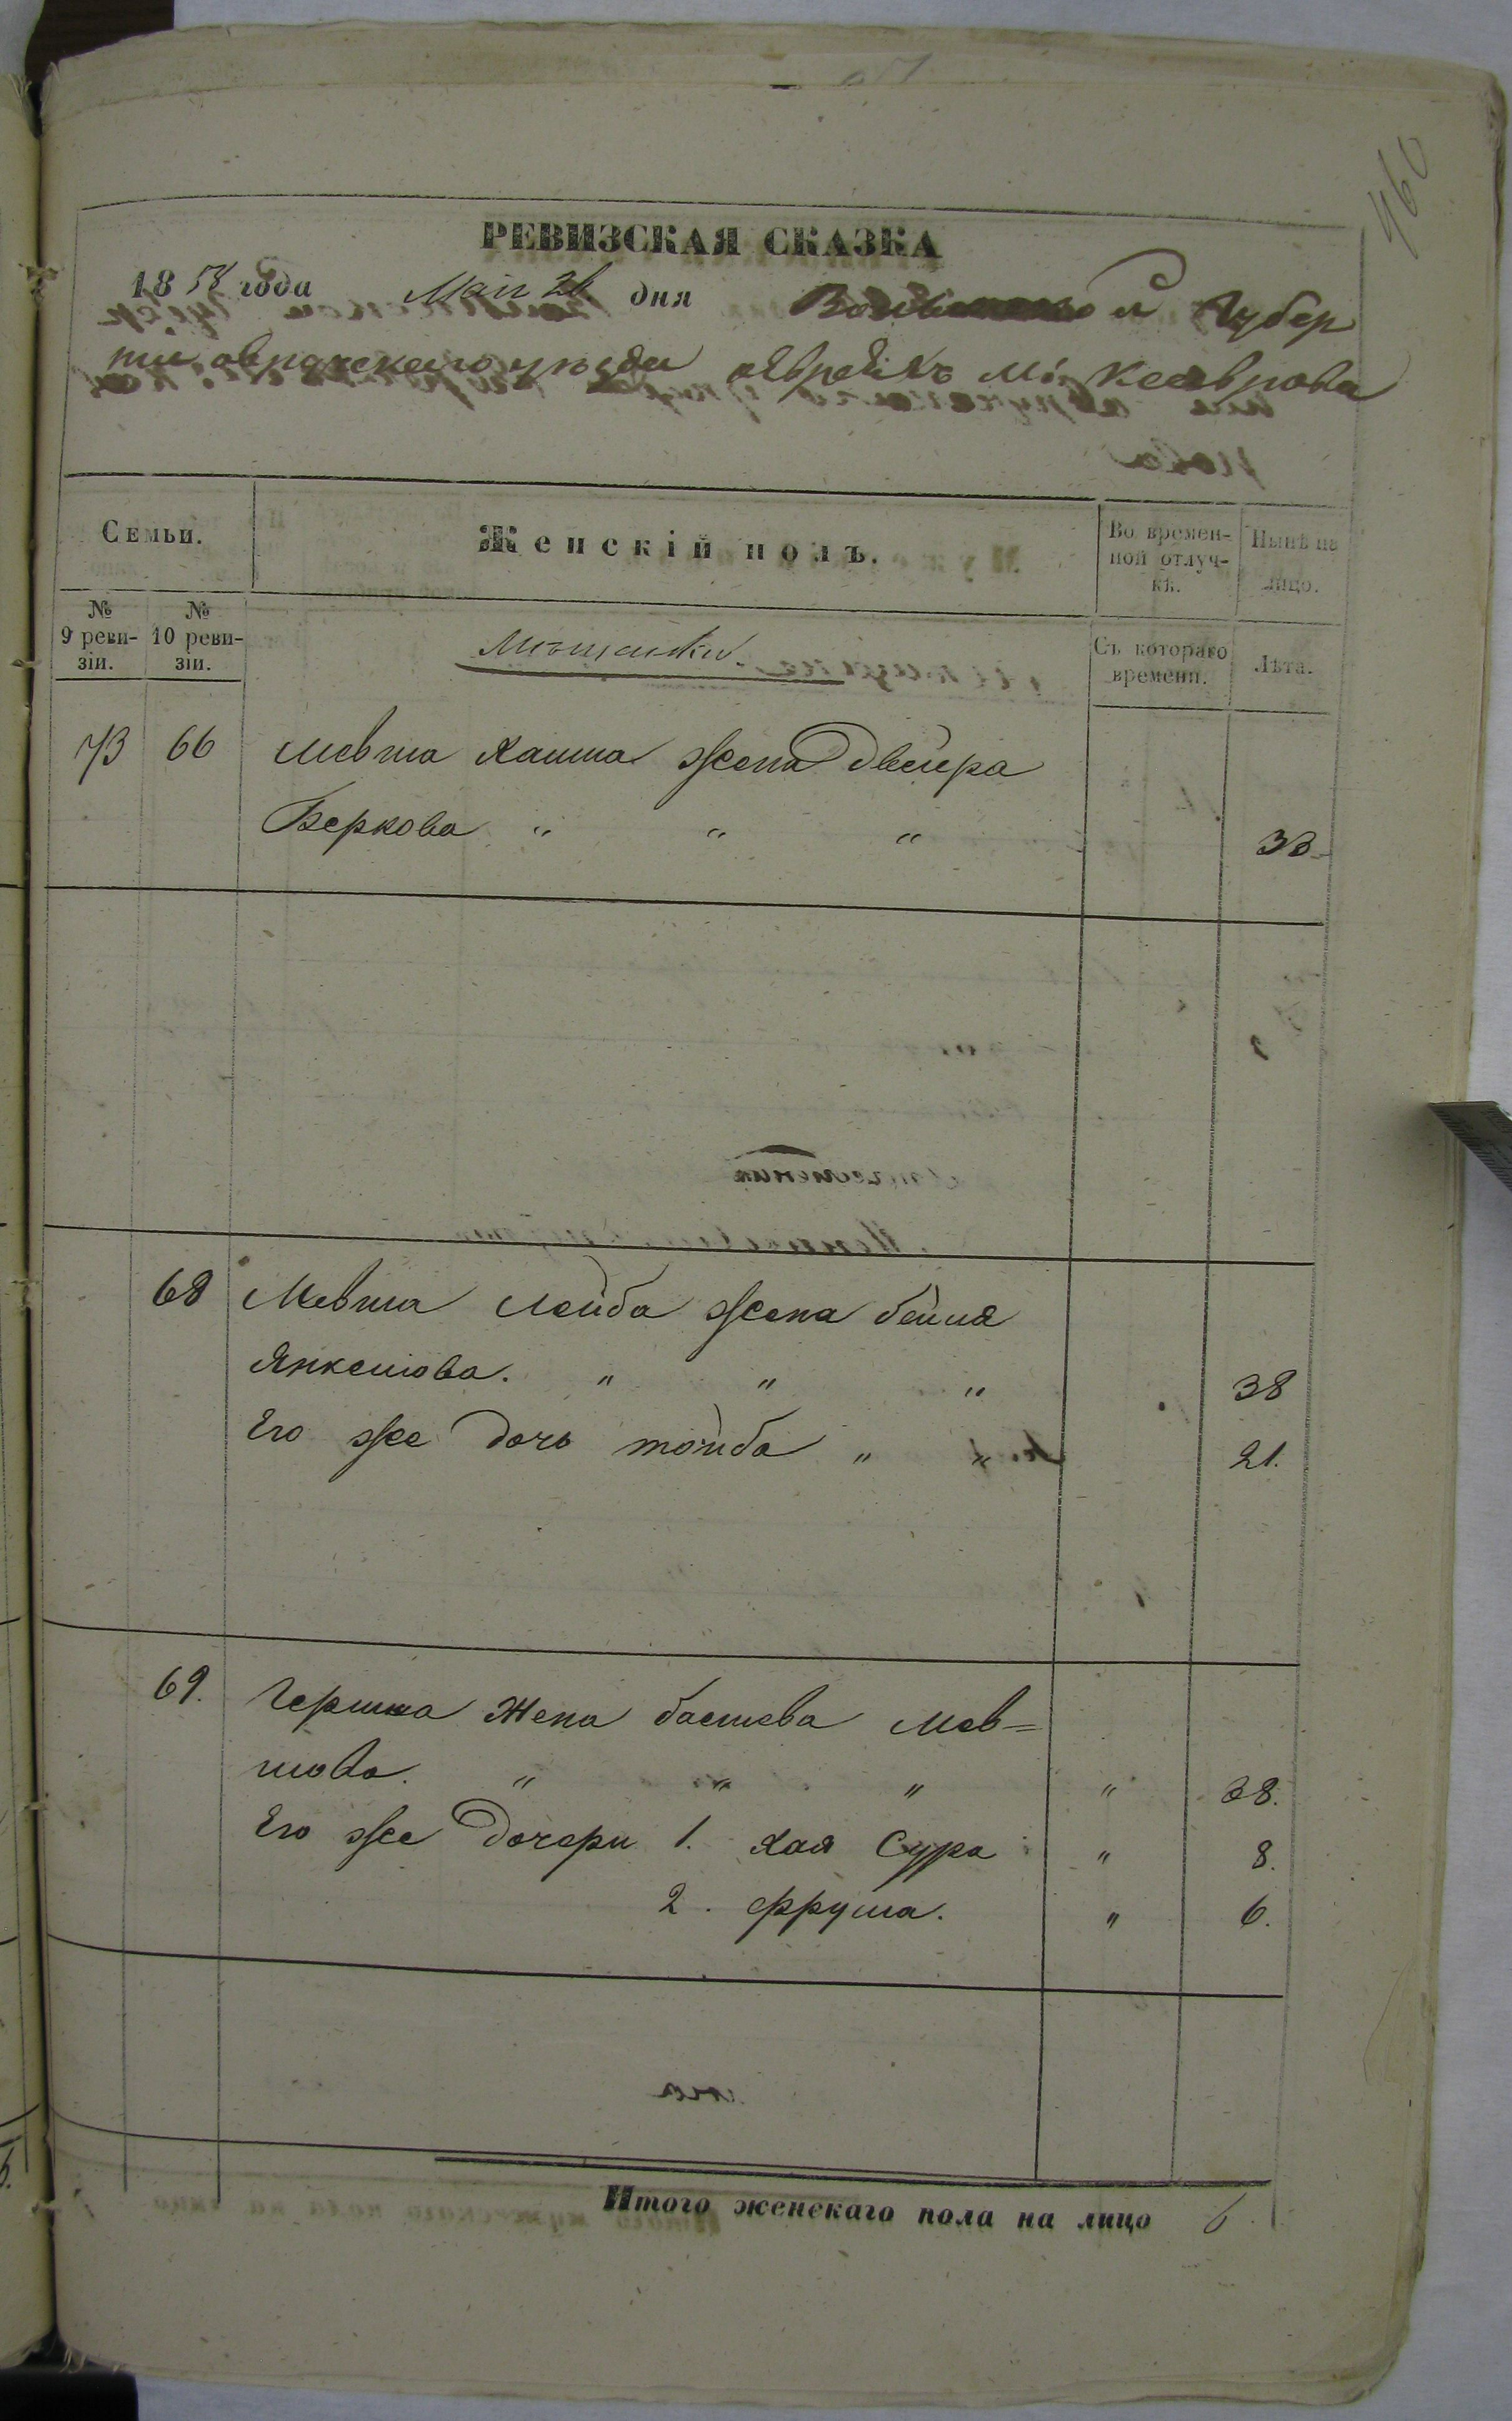 460
РЕВИЗСКАЯ СКАЗКА
1858 года Мая 26 дня Волынской Губер
нии овручскаго уѣзда о Евреяхъ м. Ксаврова
Семьи.
Женскій полъ.
Во времен-
ной отлуч-
кѣ.
Нынѣ на
лицо.
№
9 реви-
зіи.
№
10 реви-
зіи.
Мѣщанки.
Съ котораго
времени.
Лѣта.
73 66 Мевша Хаима жена Двейра
Беркова " " " 33
68 Мевша Лейба жена бейля
Янкелова. " " " 38
Его же дочь тойба " " 21.
69. Гершка Жена басшева Мев=
шова. " " " " 38.
Его же Дочери 1. Хая Сура " 8.
2. фрума. " 6.
Итого женскаго пола на лицо 6